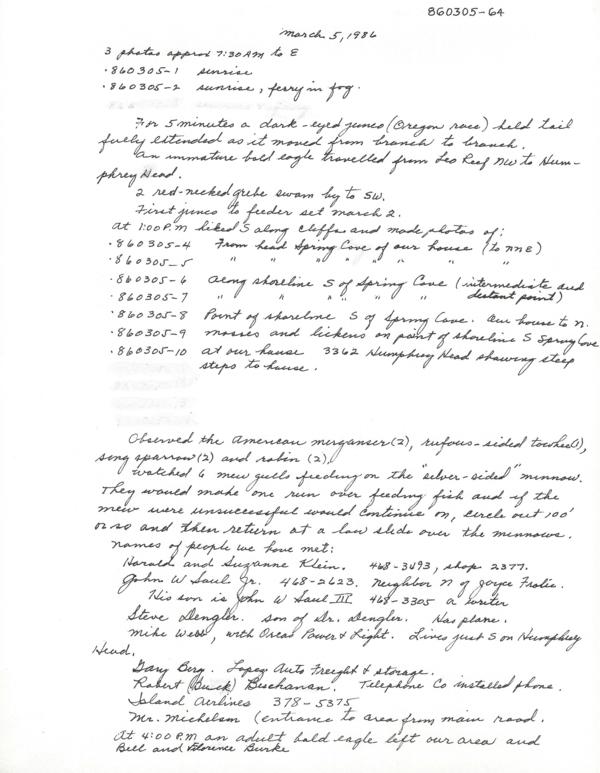 860305-6A
March 5, 1986
3 photos approx 7:30 AM to E
.860305-1 sunrise
.860305-2 sunrise, ferry in fog.
For 5 minutes a dark-eyed junco (Oregon race) held tail
fully extended as it moved from branch to branch.
An immature bald eagle travelled from Leo Reef NW to Hum-
phrey Head.
2 red-necked grebe swam by to SW.
First junco to feeder set March 2.
At 1:00 P.M hiked S along cliffs and made photos of:
.860305-4 From head Spring Cove of our house (to NNE)
.860305-5 " " " " " " " "
.860305-6 Along shoreline S of Spring Cove (intermediate and
.860305-7 " " " " " " distant point)
.860305-8 Point of shoreline S of Spring Cove. Our house to N.
.860305-9 Mosses and lichens on point of shoreline S Spring Cove
.860305-10 At our house 3362 Humphrey Head showing steep
steps to house.
Observed the American merganser (2), rufous-sided towhee (1),
song sparrow (2) and robin (2).
Watched 6 mew gulls feeding on the "silver-sided" minnow.
They would make one run over feeding fish and if the
mew were unsuccessful would continue on, circle out 100'
or so and then return at a low slide over the minnows.
Names of people we have met:
Harald and Suzanne Klein. 468-3493, shop 2377.
John W Saul Jr. 468-2623. Neighbor N of Joyce Frolic.
His son is John W Saul III 468-3305 a writer
Steve Dengler. son of Dr. Dengler. Has plane.
Mike Webb, with Orcas Power & Light. Lives just S on Humphrey
Head.
Gary Berg. Lopez Auto Freight & storage.
Robert (Buck) Buchanan. Telephone Co installed phone.
Island Airlines 378-5375
Mr. Michelsen (entrance to area from main road.
At 4:00 P.M an adult bald eagle left our area and
Bill and Florence Burke